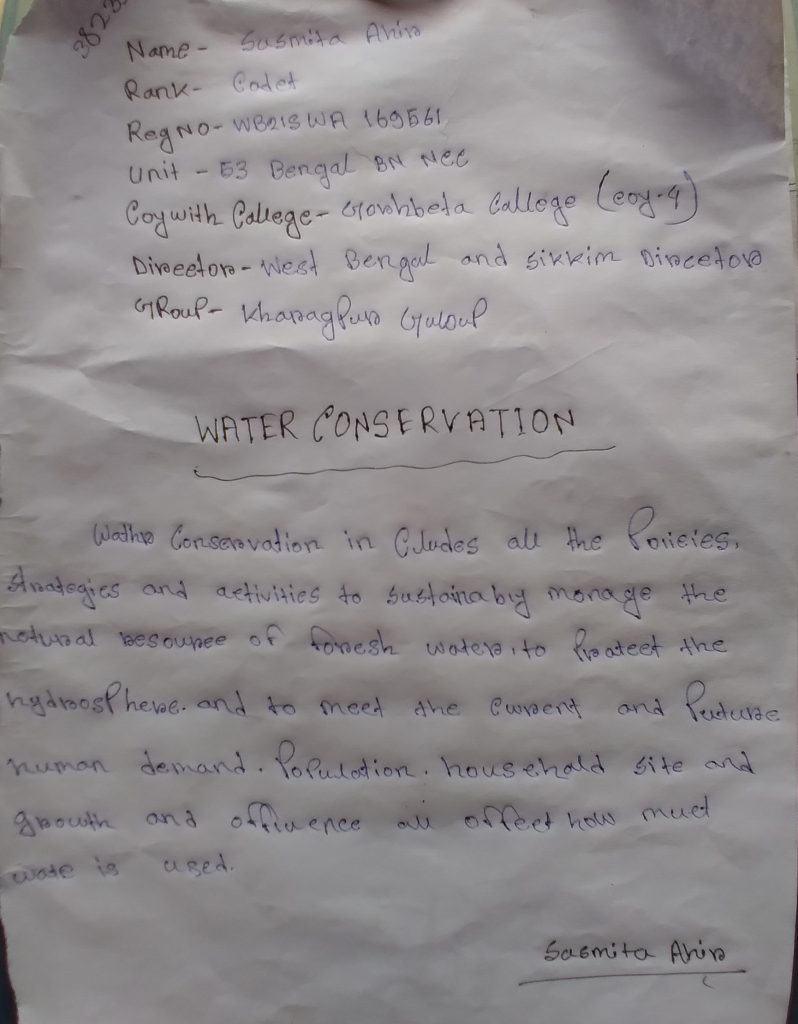 3823
Name - Susmita Ahir
Rank - Cadet
Reg NO - WB21SWA 169561
Unit - 53 Bengal BN NCC
Coy with College - Garhbeta College (coy-4)
Director - West Bengal and Sikkim Director
GRoup - Kharagpur Group
WATER CONSERVATION
Wathr Conservation in Cludes all the Policies,
strategies and activities to sustainably manage the
natural resource of foresh water, to Proatect the
hydrosphere. and to meet the current and Puture
human demand. Population. household site and
growth and affluence all affect how much
wate is used.
Sasmita Ahir